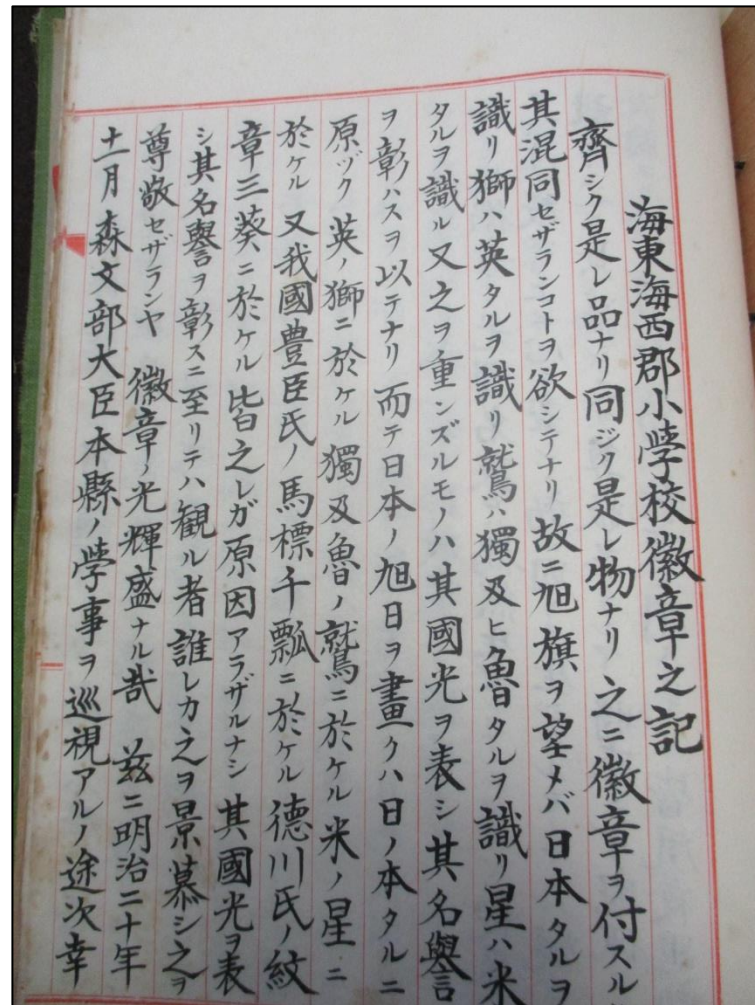 海東海西郡小學校徽章之記
齊シク是レ品ナリ同ジク是レ物ナリ之ニ徽章ヲ付スル
其混同セザランコトヲ欲シテナリ故ニ旭旗ヲ望メバ日本タルヲ
識リ獅ハ英タルヲ識リ鷲ハ獨及ヒ魯タルヲ識リ星ハ米
タルヲ識ル又之ヲ重ンズルモノハ其國光ヲ表シ其名譽
ヲ彰ハスヲ以テナリ而テ日本ノ旭日ヲ畫クハ日ノ本タルニ
原ヅク英ノ獅ニ於ケル獨及魯ノ鷲ニ於ケル米ノ星ニ
於ケル又我國豊臣氏ノ馬標千瓢ニ於ケル徳川氏ノ紋
章三葵ニ於ケル皆之レガ原因アラザルナシ其國光ヲ表
シ其名譽ヲ彰スニ至リテハ観ル者誰レカ之ヲ景慕シ之ヲ
尊敬セザランヤ 徽章ノ光輝盛ナル哉 茲ニ明治二十年
十一月森文部大臣本縣ノ學事ヲ巡視アルノ途次幸